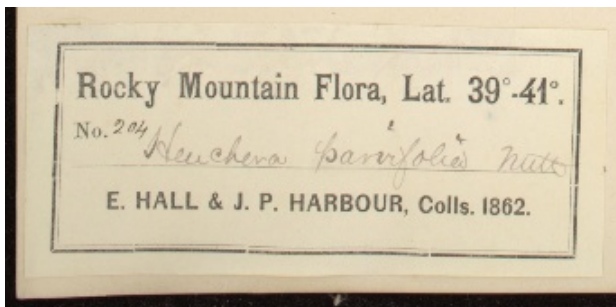 Rocky Mountain Flora, Lat. 39°-41°.
No. 204 Heuchera parvifolia Nutt
E. HALL & J. P. HARBOUR, Colls. 1862.